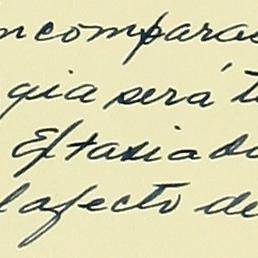 ncomparas
gia será t
Extasiado
l afecto de